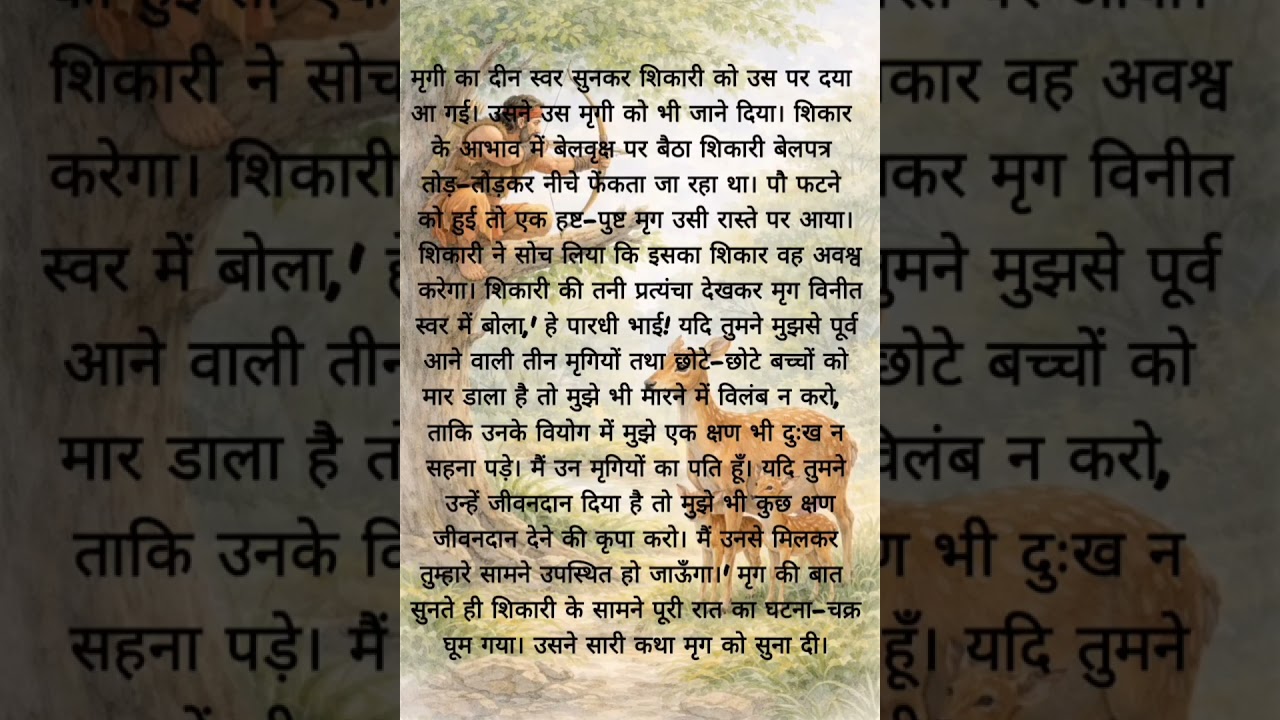 मृगी का दीन स्वर सुनकर शिकारी को उस पर दया
आ गई। उसने उस मृगी को भी जाने दिया। शिकार
के आभाव में बेलवृक्ष पर बैठा शिकारी बेलपत्र
तोड़-तोड़कर नीचे फेंकता जा रहा था। पौ फटने
को हुई तो एक हृष्ट-पुष्ट मृग उसी रास्ते पर आया।
शिकारी ने सोच लिया कि इसका शिकार वह अवश्व
करेगा। शिकारी की तनी प्रत्यंचा देखकर मृग विनीत
स्वर में बोला,' हे पारधी भाई! यदि तुमने मुझसे पूर्व
आने वाली तीन मृगियों तथा छोटे-छोटे बच्चों को
मार डाला है तो मुझे भी मारने में विलंब न करो,
ताकि उनके वियोग में मुझे एक क्षण भी दुःख न
सहना पड़े। मैं उन मृगियों का पति हूँ। यदि तुमने
उन्हें जीवनदान दिया है तो मुझे भी कुछ क्षण
जीवनदान देने की कृपा करो। मैं उनसे मिलकर
तुम्हारे सामने उपस्थित हो जाऊँगा।' मृग की बात
सुनते ही शिकारी के सामने पूरी रात का घटना-चक्र
घूम गया। उसने सारी कथा मृग को सुना दी।